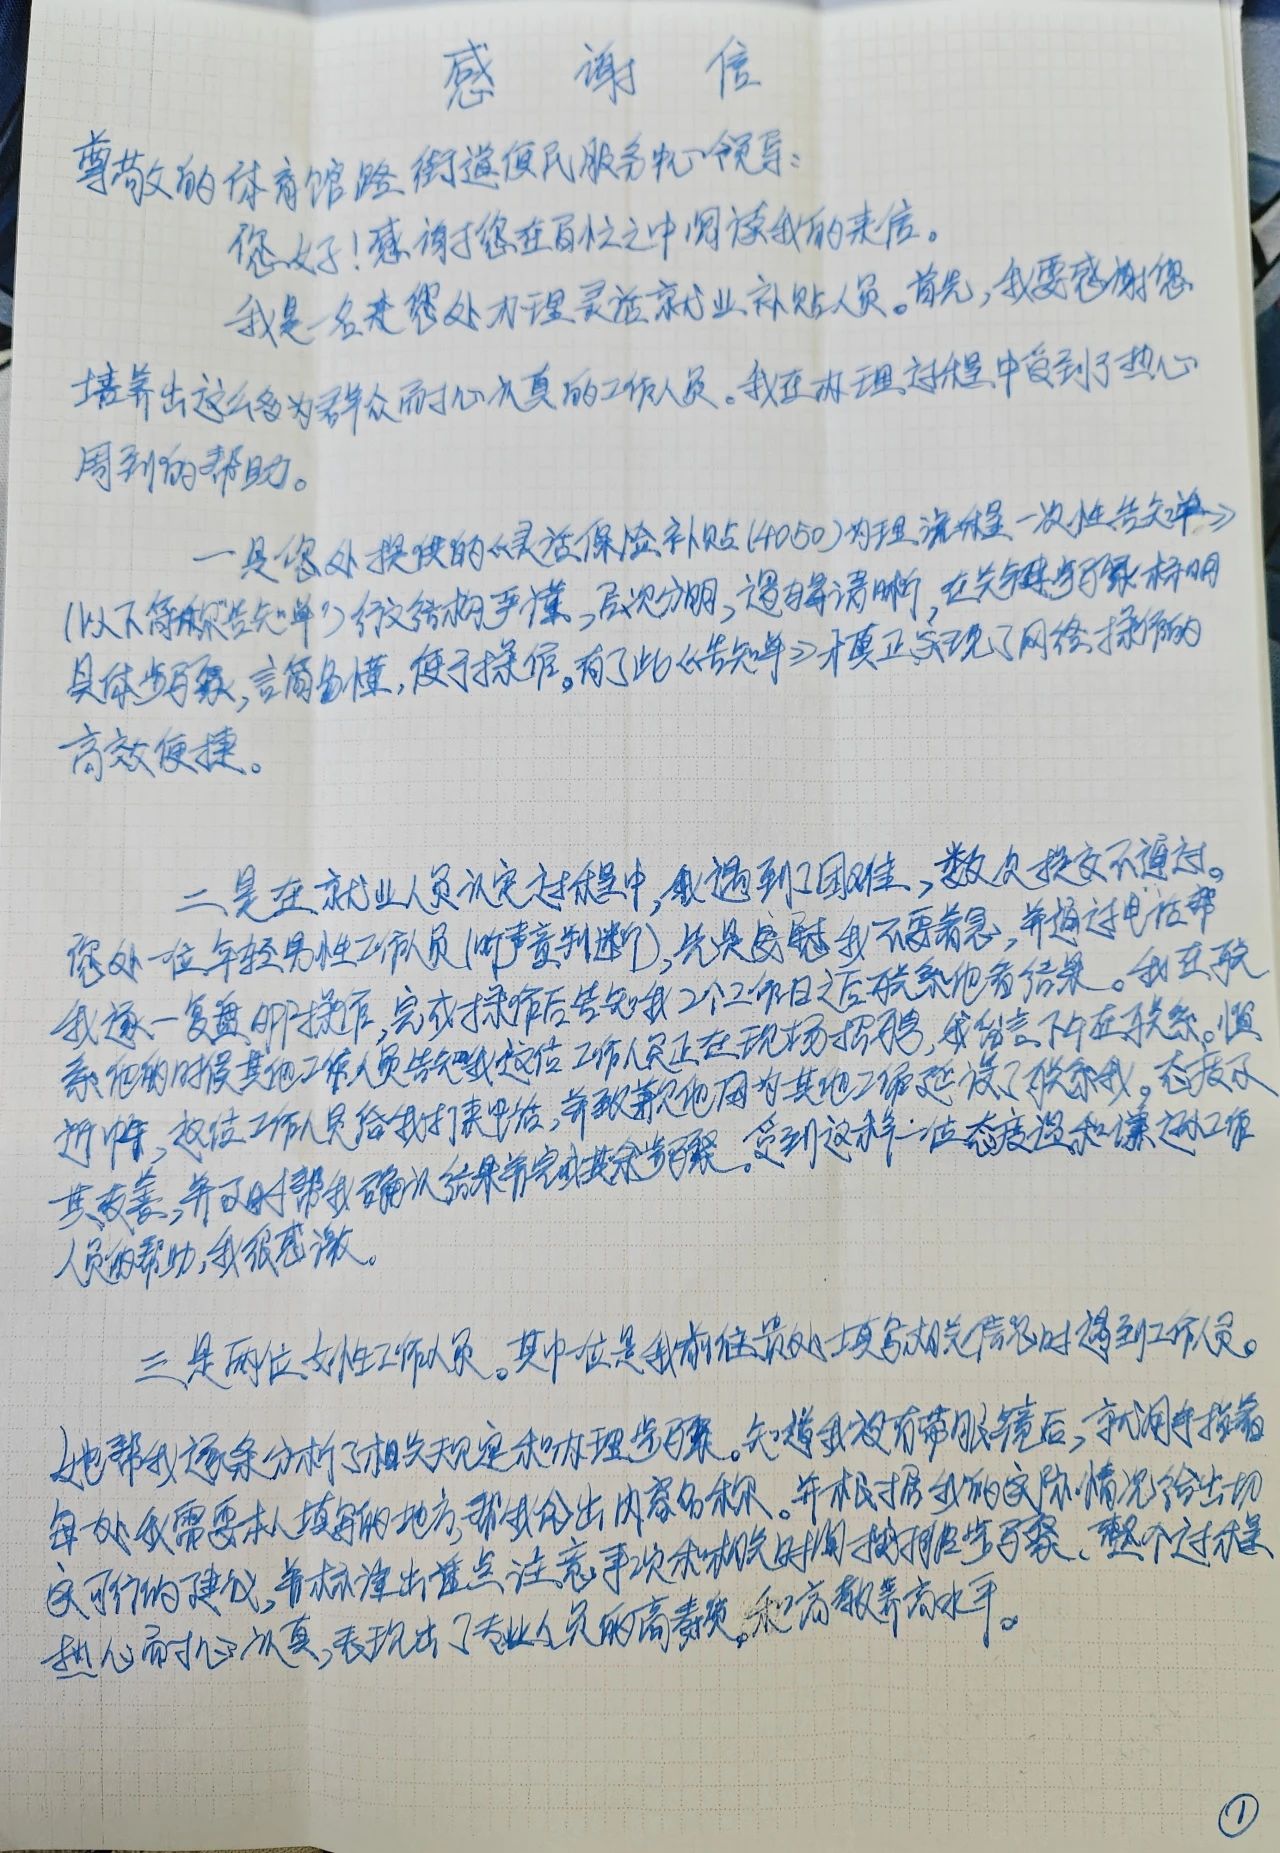 感谢信
尊敬的体育馆路街道便民服务中心领导：
您好！感谢您在百忙之中阅读我的来信。
我是一名在您处办理灵活就业补贴人员。首先，我要感谢您
培养出这么多为群众而耐心认真的工作人员。我在办理过程中受到了热心
周到的帮助。
一是您处提供的《灵活保险补贴(4050)办理流程一次性告知单》
(以下简称“告知单”)行文结构严谨，层次分明，逻辑清晰，在关键步骤标明
具体步骤，言简易懂，便于操作。有了此《告知单》才真正实现了网络操作的
高效便捷。
二是在就业人员认定过程中，我遇到了困难，数次提交不通过。
您处一位年轻男性工作人员(听声音判断)，先是安慰我不要着急，并通过电话帮
我逐一复盘APP操作，完成操作后告知我2个工作日之后联系他看结果。我在联
系他的时候其他工作人员告知我这位工作人员正在现场招聘，我留言下午在联系。
这位工作人员给我打来电话，并致歉说他因为其他工作延误了联系我。态度
并及时帮我确认结果并完成其余步骤。受到这样一位态度温和谦逊工作
人员的帮助，我很感激。
三是两位女性工作人员。其中一位是我前往贵处填写相关信息时遇到工作人员。
她帮我逐条分析了相关规定和办理步骤。知道我没有带眼镜后，就用手指着
每处我需要本人填写的地方，帮我念出内容名称。并根据我的实际情况给出切
实可行的建议，并标注出重点注意事项和相关时间 步骤、整个过程
热心而耐心认真，表现出了专业人员的高素质。和高教养高水平。
①